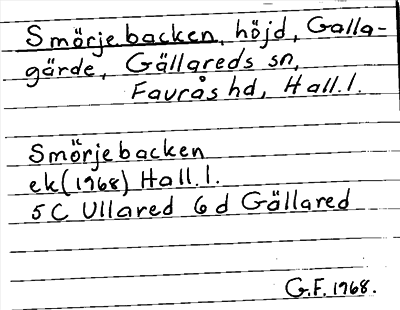 Smörjebacken, höjd, Galla-
gärde, Gällareds sn,
Faurås hd, Hall. l.
Smörjebacken
ek (1968) Hall. l.
5 C Ullared 6 d Gällared
G.F. 1968.